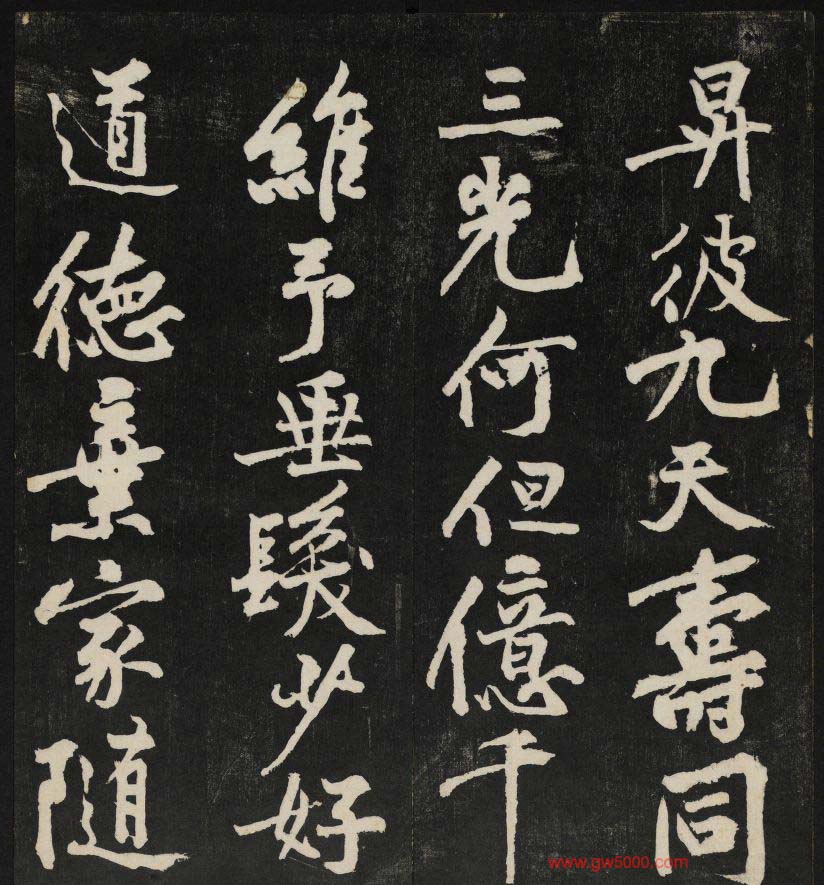 昇彼九天壽同
三光何但億千
維予垂髮少好
道德棄家隨
www.gw5000.com